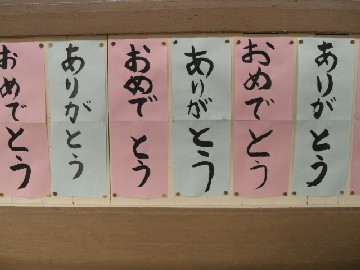 おめでとう
ありがとう
おめでとう
ありがとう
おめでとう
ありがとう